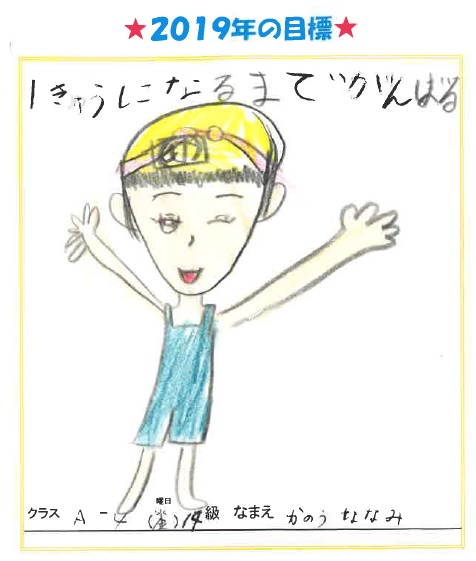 ★2019年の目標★
1きゅうになるまでがんばる
曜日
クラス A-4 (金) 14級 なまえ かのう ななみ